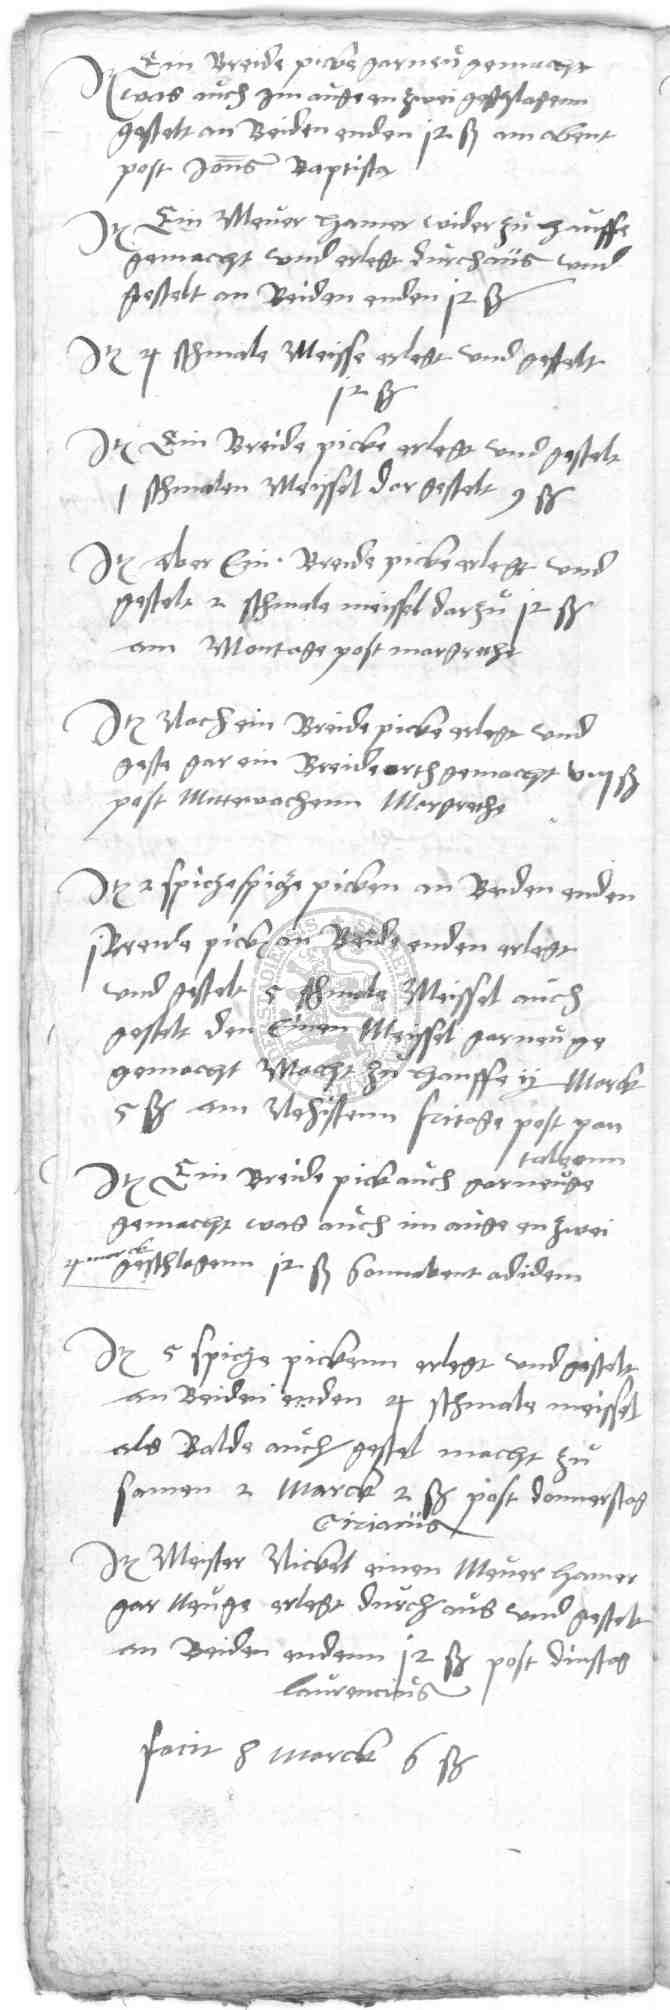 Itz Ein Breide picke gar neu gemacht
was auch im auge en zwei geschlagenn
gestelt an Beiden enden 12 ß am abent
post Jo͞ns Baptista
Itz Ein Meuer hamer wider zu hauffe
gemacht und erlegt durchaus und
gestelt an Beiden enden 12 ß
Itz 4 schmale Meisse erlegt und gestelt
12 ß
Itz Ein Breide picke erlegt und gestelt
1 schmalen Meissel dar gestelt 9 ß
Itz aber Ein Breide picke erlegt und
gestelt 2 schmale meissel darzu 12 ß
am Montage post margrethe
Itz Noch ein Breide picke erlegt und
geste gar ein Breide orth gemacht ß
post Mittwachenn Margrethe
Itz 2 spicze spicze picken an Beiden enden
1 Breide pick an Beide enden erlegt
und gestelt 5 schmale Meissel auch
gestelt den Einen Meyssel gar neu ge
gemacht Macht zu hauffe ij Marck
5 ß am Nehistenn fritage post pan
taleonn
Itz Ein Breide pick auch gar neuge
gemacht was auch im auge en zwei
4 marck geschlagenn 12 ß Sonnabent adidem
Itz 5 spicze pickenn erlegt und gestelt
an Beiden enden 4 schmale meissel
als Balde auch gestel macht zu
samen 2 Marck 2 ß post donnerstag
Ciriacus
Itz Meister Nickel einen Meuer hamer
gar Neuge erlegt durch aus und gestelt
an Beiden endenn 12 ß post dinstag
laurencius
facit 8 Marck 6 ß